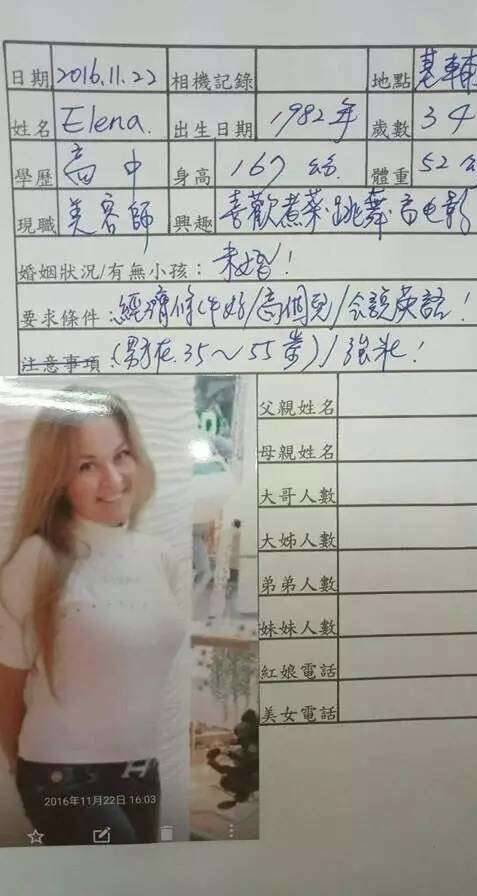 日期 2016.11.22 相機記錄 地點 基輔
姓名 Elena. 出生日期 1982年 歲數 34
學歷 高中 身高 167 公分 體重 52公
現職 美容師 興趣 喜歡煮菜.跳舞.看电影
婚姻狀況/有無小孩: 未婚!
要求條件: 經濟條件好/高個兒/会說英語!
注意事項: (男方在35~55歲)/強壯!
父親姓名
母親姓名
大哥人數
大姊人數
弟弟人數
妹妹人數
紅娘電話
美女電話
2016年11月22日 16:03